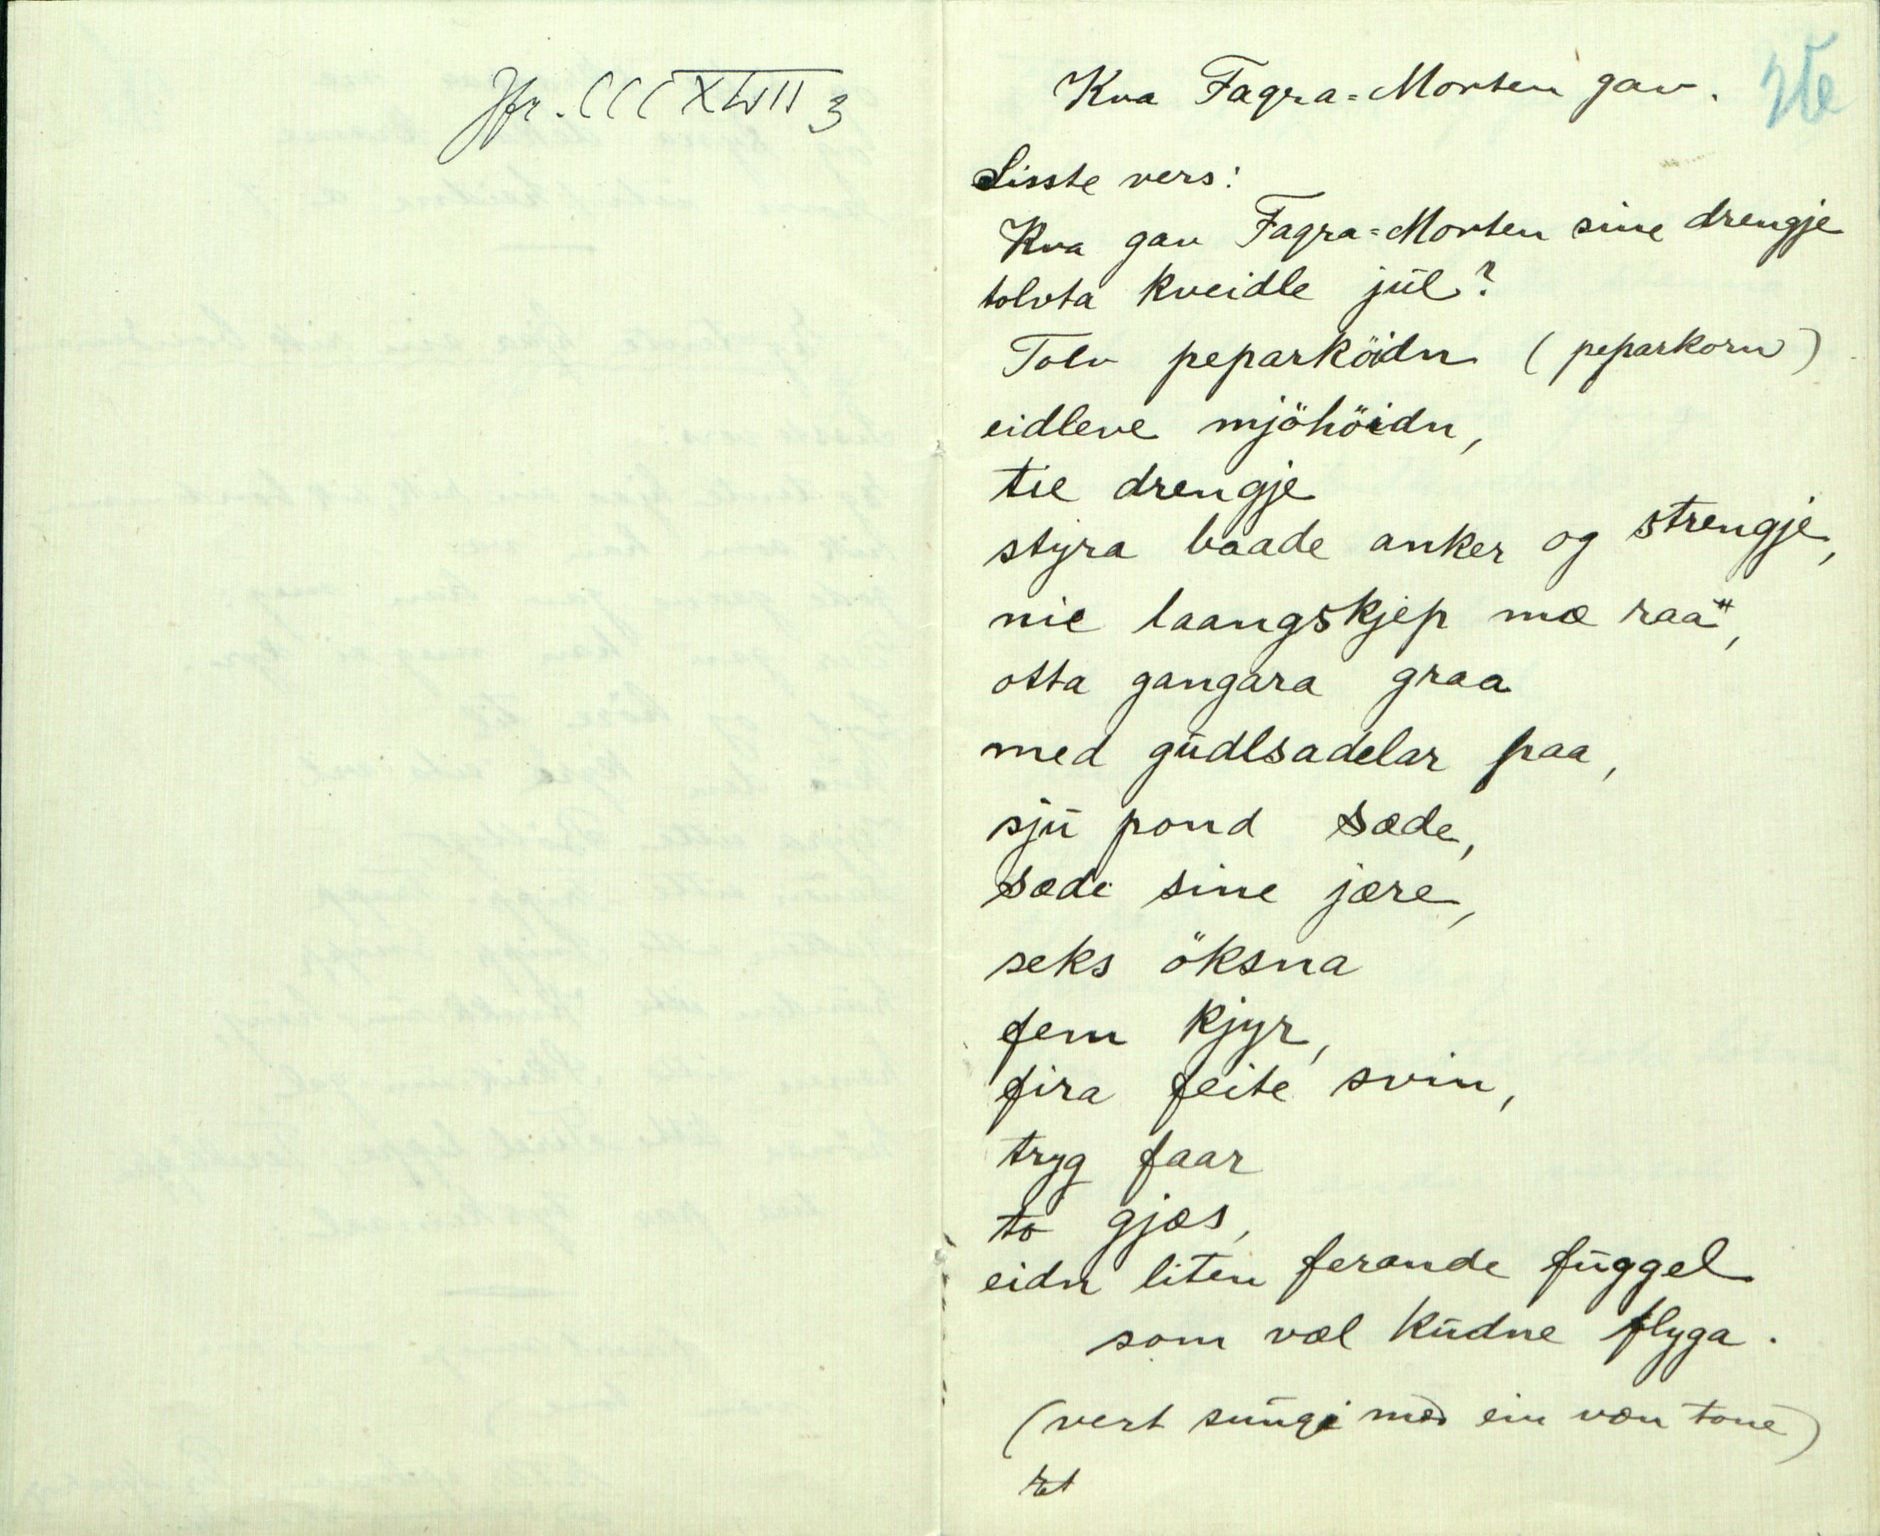 Jfr. CCCXLVII 3
Kva Fagra-Morten gav.
Sisste vers:
Kva gav Fagra-Morten sine drengje
tolvta kveidle jūl?
Tolv peparköidn (peparkorn)
eidleve mjöhöidn,
tie drengje
styra baade anker og strengje,
nie laangskjep mæ raa",
otta gangara graa
med gūdlsadelar paa,
sjū pond sæde,
sæde sine jære,
seks öksna
fem kjyr,
fira feite svin,
tryg faar
to gjæs,
eidn liten ferande fūggel
som væl kūdne flyga.
(vert sūngi med ein væn tone)